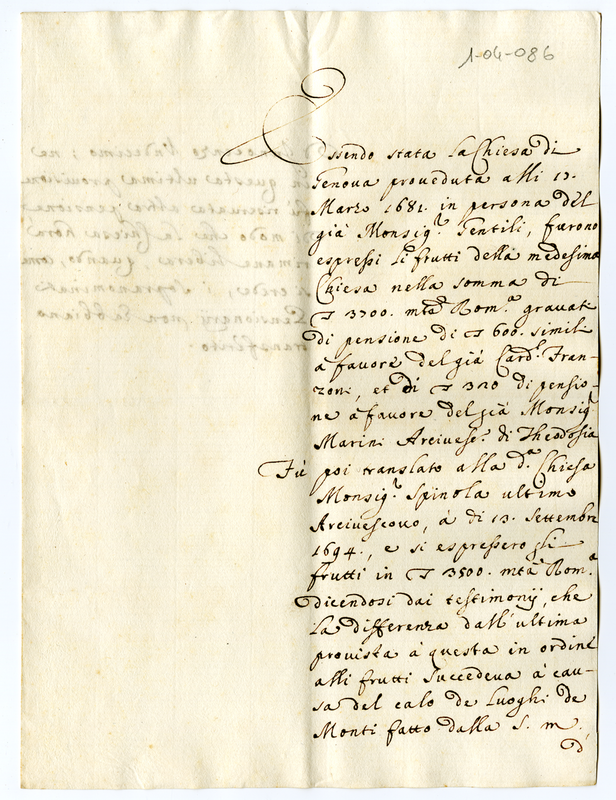 1-04-086
Essendo stata la Chiesa di
Genova proveduta alli 13.
Marzo 1681. in persona del
già Monsig.r Gentili, furono
espressi li frutti della medesima
Chiesa nella somma di
3700. mta Rom.a gravati
di pensione di 600. simili
a favore del già Card.l Fran-
zoni, et di 320 di pensio-
ne a favore del già Monsig.r
Marini Arcivesc.o di Theodosia
Fù poi translato alla d.a Chiesa
Monsig.r Spinola ultimo
Arcivescovo, à di 13. Settembre
1694., e si espressero gli
frutti in 3500. mta Rom.a
dicendosi dai testimonij, che
la differenza dall'ultima
provista à questa in ordine
alli frutti succedeva à cau-
sa del calo de Luoghi de
Monti fatto dalla S. m.